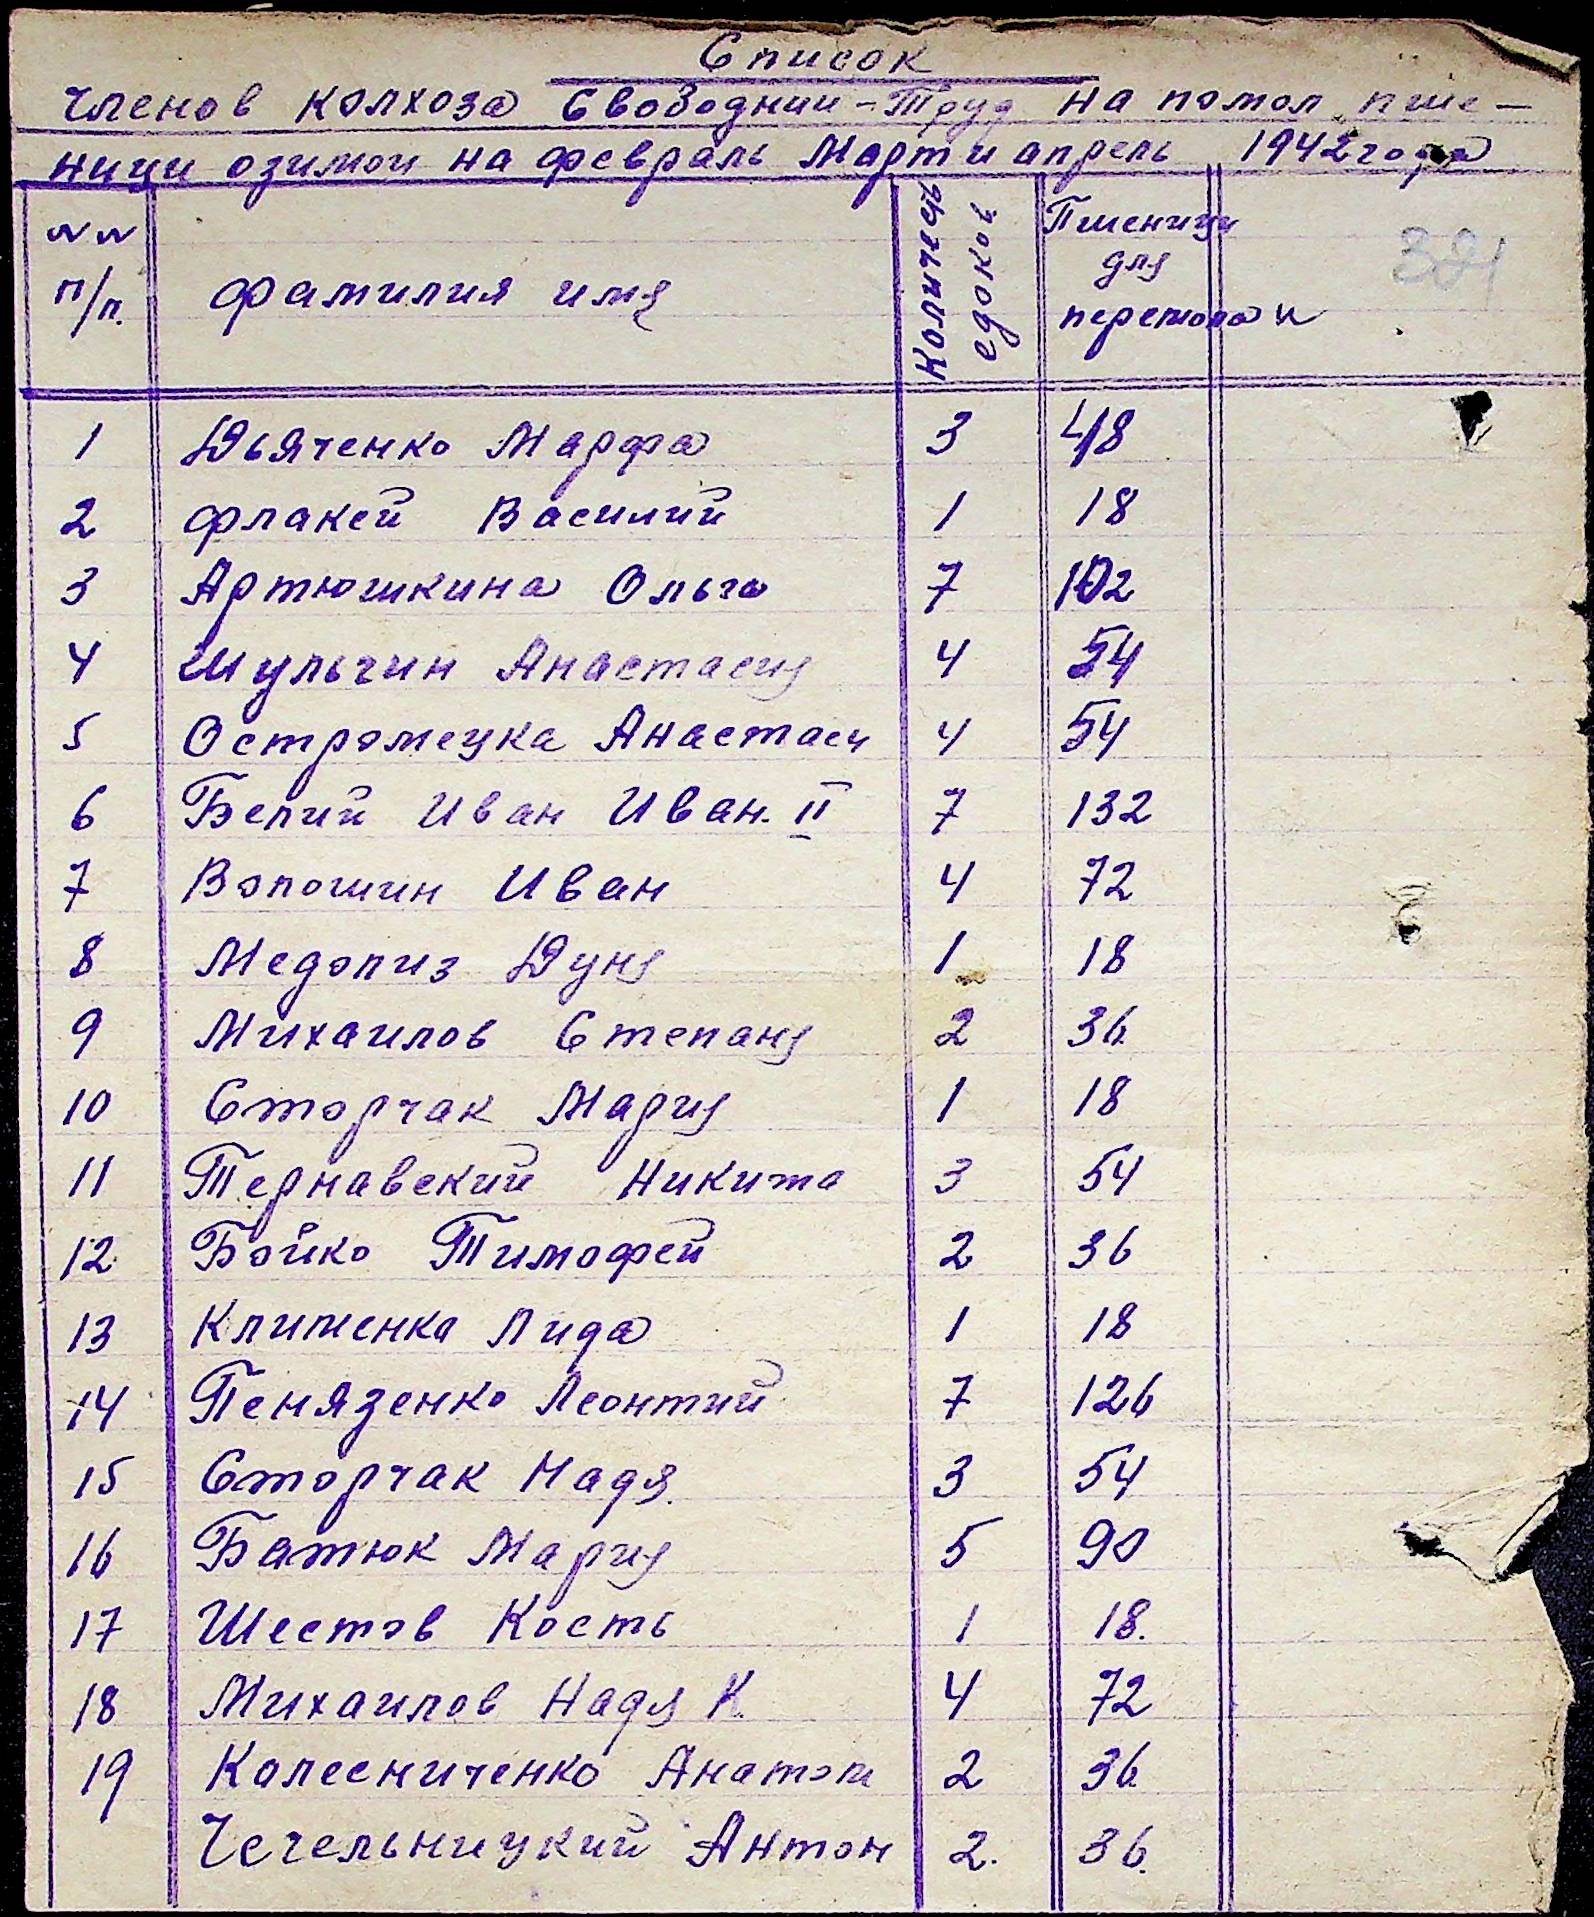 Список
членов колхоза Свободнии-Труд на помол пше-
ници озимои на февраль Март и апрель 1942 года
№№ п/п.
фамилия имя
Количеств едоков
Пшеници для перемола
321
1 Дьяченко Марфа 3 48
2 Флакей Василий 1 18
3 Артюшкина Ольга 7 102
4 Шульгин Анастасия 4 54
5 Остромецка Анастаси 4 54
6 Белий Иван Иван. II 7 132
7 Волошин Иван 4 72
8 Медолиз Дуня 1 18
9 Михаилов Степаня 2 36.
10 Сторчак Мария 1 18
11 Тернавский Никита 3 54
12 Бойко Тимофей 2 36
13 Клименка Лида 1 18
14 Пенязенко Леонтий 7 126
15 Сторчак Надя. 3 54
16 Батюк Мария 5 90
17 Шестов Кость 1 18.
18 Михаилов Надя К. 4 72
19 Калесниченко Анатол 2 36.
Чечельницкий Антон 2. 36.